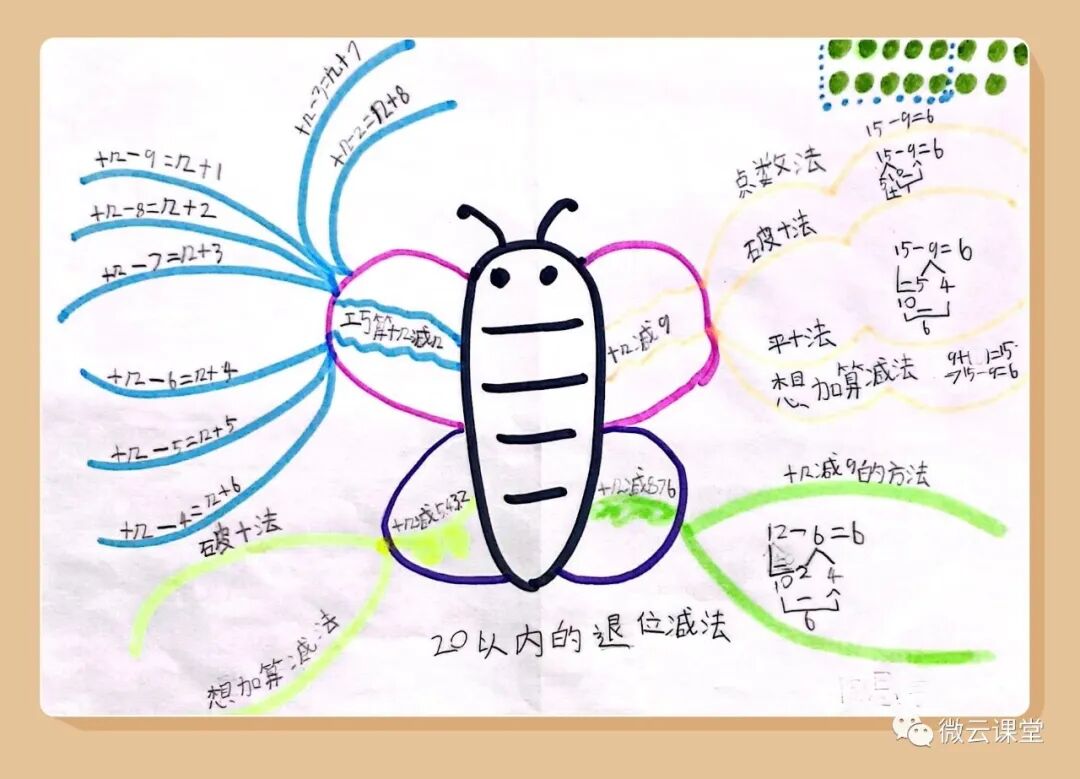 十几-3=几+7
十几-2=几+8
十几-9=几+1
十几-8=几+2
十几-7=几+3
十几-6=几+4
十几-5=几+5
十几-4=几+6
巧算十几减几
十几减9
点数法
15-9=6
15-9=6
破十法
15-9=6
5 4
10
6
平十法
想加算减法
15-9=6
十几减5432
破十法
想加算减法
十几减876
十几减9的方法
12-6=6
10 2 4
6
20以内的退位减法
微云课堂